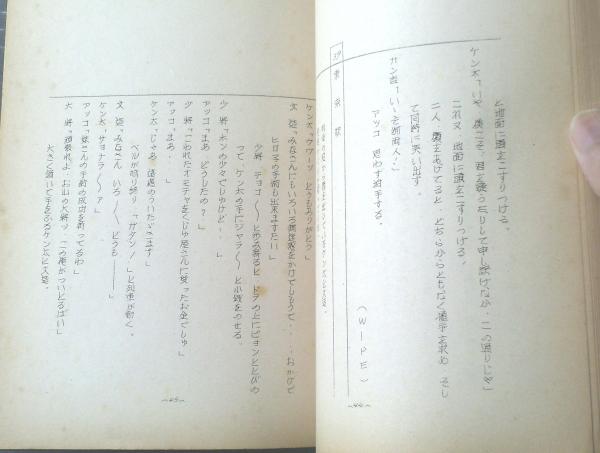 と地面に頭をこすりつける。
ケン太「いや、僕こそ、君を疑ったりして申し訳けなか、この通りじゃ」
これ又、地面に頭をこすりつける。
二人、顔をあげてると、どちらからともなく握手を求め、そし
て同時に笑い出す。
「いゝぞ御両人！」
アッコ 思わず拍手する。
（WIPE）
39
〜44〜
ケン太「ウワーッ、どうもありがとう」
「みなさんにもいろいろ御迷惑をかけてしもうて、‥‥おかげで
ヒロ子の手術も出来ますたい」
少尉 チョコ〱と歩み寄ると
って、ケン太の手にジャラ〱と小銭をのせる。
少尉「ホンの少々でしゅけど‥‥」
アッコ「まあ どうしたの？」
少尉「こわれたオモチャをくじゅ屋さんに売ったお金でしゅ」
アッコ「まあ‥‥」
ケン太「じゃあ、
ベルが鳴り終り、「ガタン！」と列車が動く。
「みなさん いろ〱、どうも――」
ケン太「サヨナラ〱？」
アッコ「妹さんの手術の成功を祈ってるわ」
大将「頑張れよ、お山の大将ッ、この俺がついとるばい」
大きく頷いて手をふるケン太と
〜45〜